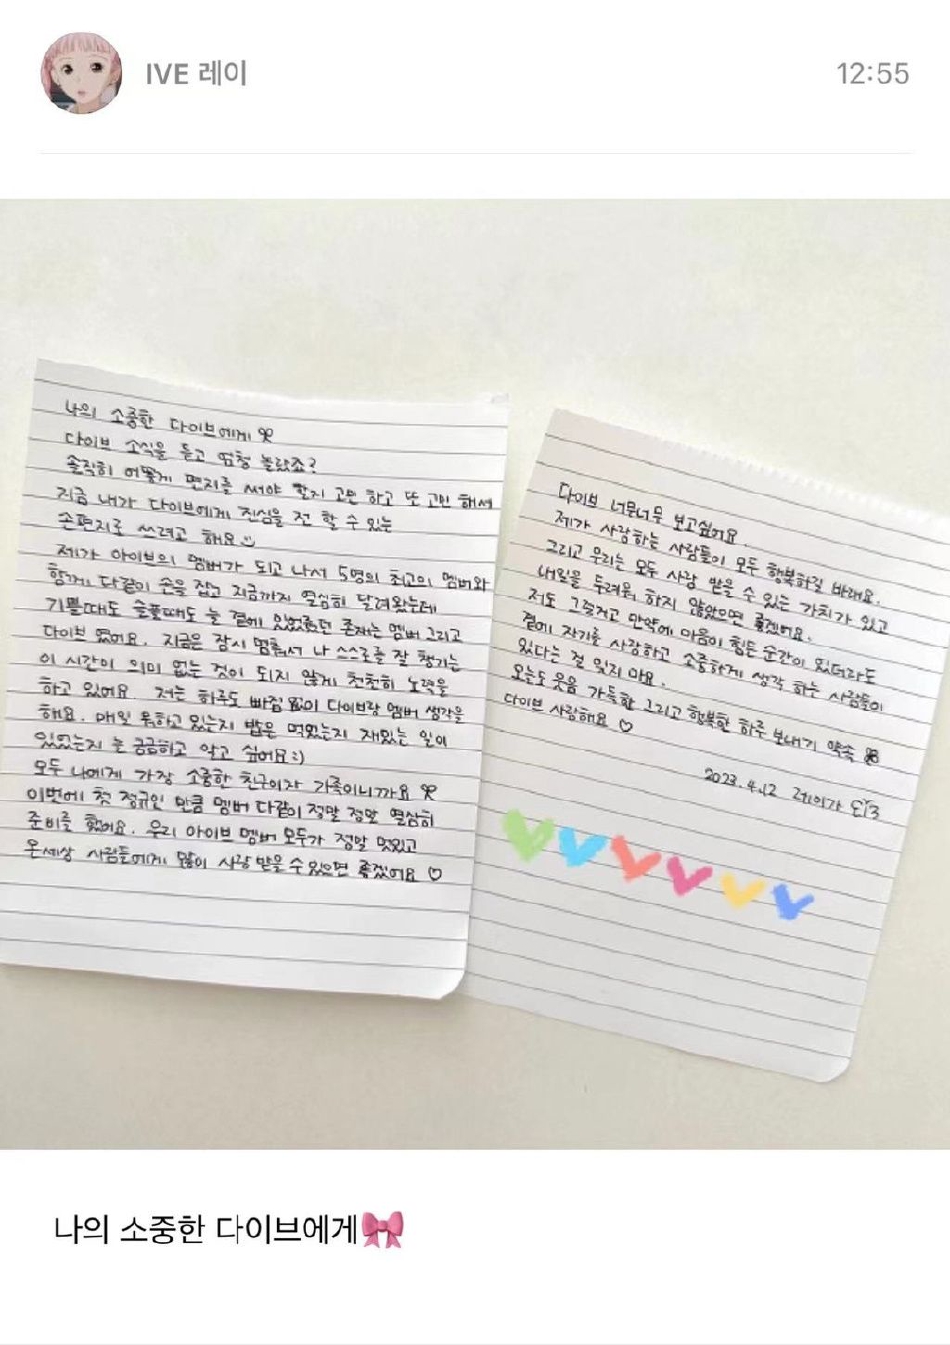 IVE 레이
12:55
나의 소중한 다이브에게
다이브 소식을 듣고 엄청 놀랐죠?
솔직히 어떻게 편지를 써야 할지 고민 하고 또 고민 해서
지금 내가 다이브에게 진심을 전 할 수 있는
손편지로 쓰려고 해요
제가 아이브의 멤버가 되고 나서 5명의 최고의 멤버와
함께 다같이 손을 잡고 지금까지 열심히 달려왔는데
기쁠때도 슬플때도 늘 곁에 있었던 존재는 멤버 그리고
다이브 였어요. 지금은 잠시 멈춰서 나 스스로를 잘 챙기는
이 시간이 의미 없는 것이 되지 않게 천천히 노력을
하고 있어요 저는 하루도 빠짐 없이 다이브랑 멤버 생각을
해요. 매일 뭐하고 있는지 밥은 먹었는지 재밌는 일이
있었는지 늘 궁금하고 알고 싶어요:)
모두 나에게 가장 소중한 친구이자 가족이니까요
이번에 첫 정규인 만큼 멤버 다같이 정말 정말 열심히
준비를 했어요. 우리 아이브 멤버 모두가 정말 멋있고
온세상 사람들에게 많이 사랑 받을 수 있으면 좋겠어요 ♡
다이브 너무너무 보고싶어요.
제가 사랑하는 사람들이 모두 행복하길 바래요.
그리고 우리는 모두 사랑 받을 수 있는 가치가 있고
내일을 두려워 하지 않았으면 좋겠어요.
저도 그렇고 만약에 마음이 힘든 순간이 있더라도
곁에 자기를 사랑하고 소중하게 생각 하는 사람들이
있다는 걸 잊지 마요.
오늘도 웃음 가득한 그리고 행복한 하루 보내기 약속
다이브 사랑해요 ♡
2023. 4.12 레이가
나의 소중한 다이브에게🎀